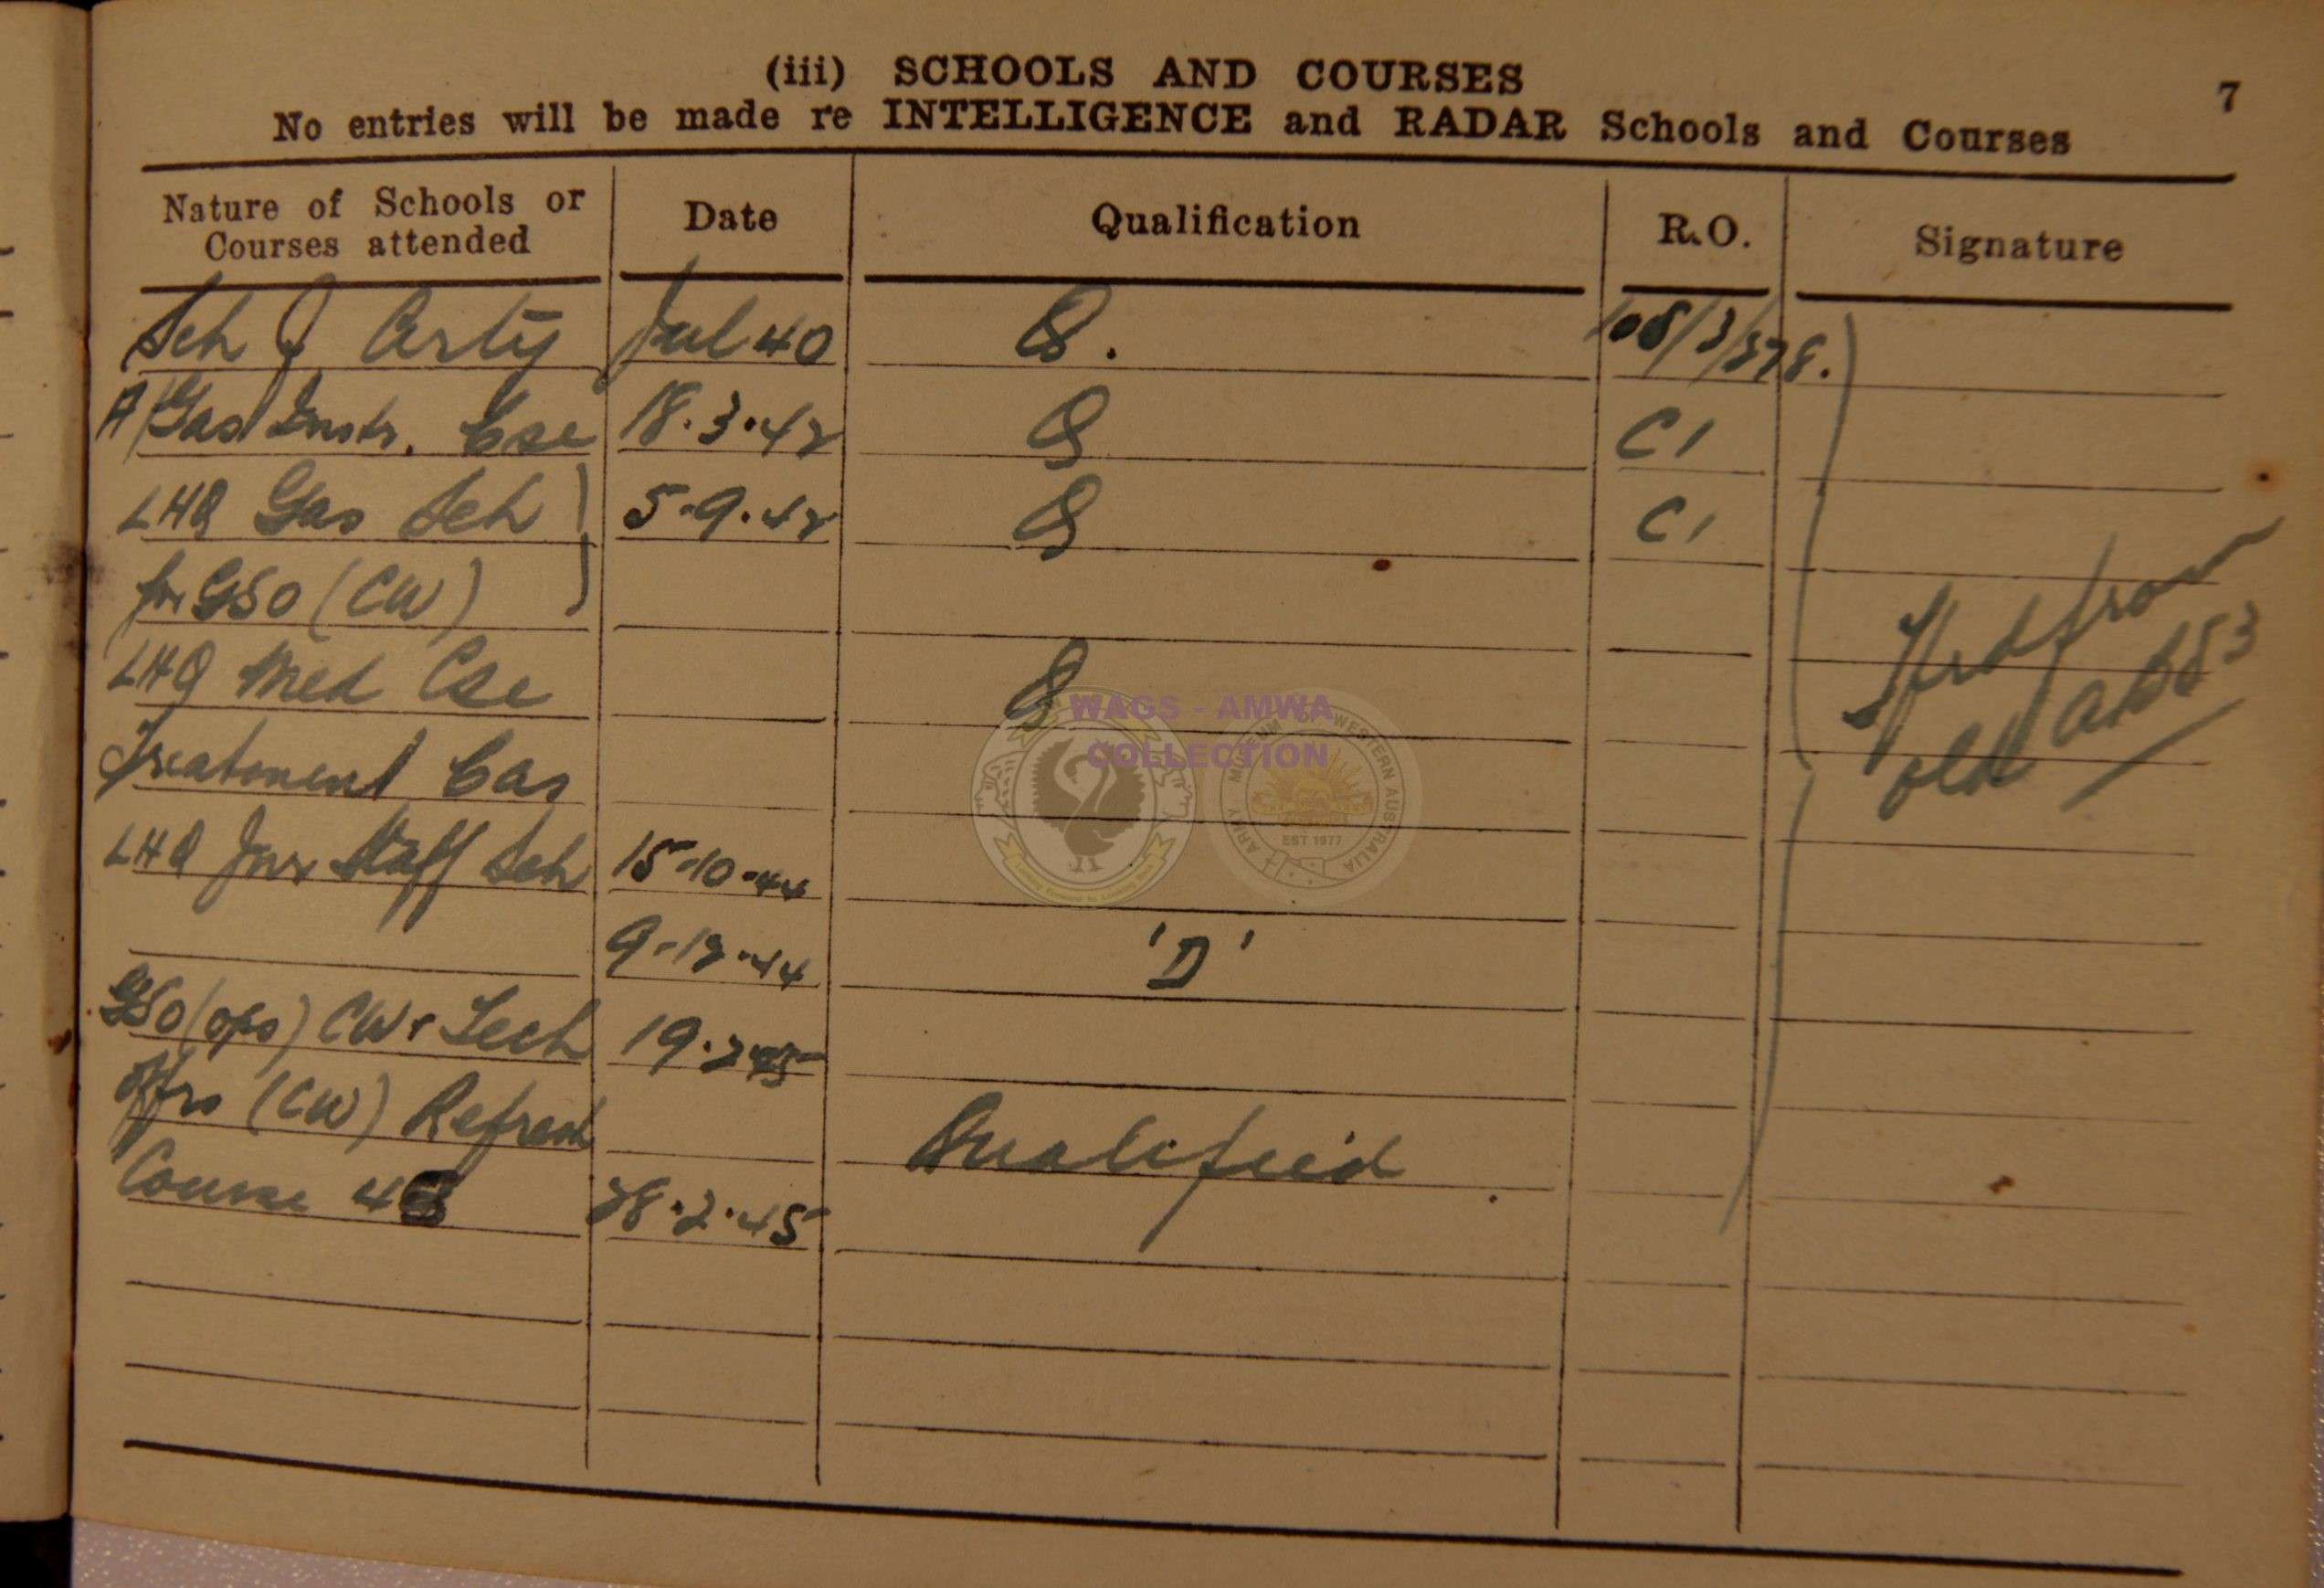 (iii) SCHOOLS AND COURSES
7
No entries will be made re INTELLIGENCE and RADAR Schools and Courses
Nature of Schools or Courses attended Date Qualification R.O. Signature
Sch of Arty Jul 40 Q. 108/3/378.
A/Gas Instr. Cse 18.3.42 Q C1
LHQ Gas Sch 5.9.42 Q C1
for GSO (CW)
LHQ Med Cse Q
Treatment Cas
LHQ Jnr Staff Sch 15-10-44
9-12-44 'D'
GSO (ops) CW & Tech 19.2.45
Offrs (CW) Refresh Qualified
Course 28.2.45
Tfrd from
old AAB83
WAGS - AMWA
COLLECTION
ARMY MUSEUM OF WESTERN AUSTRALIA
EST 1977